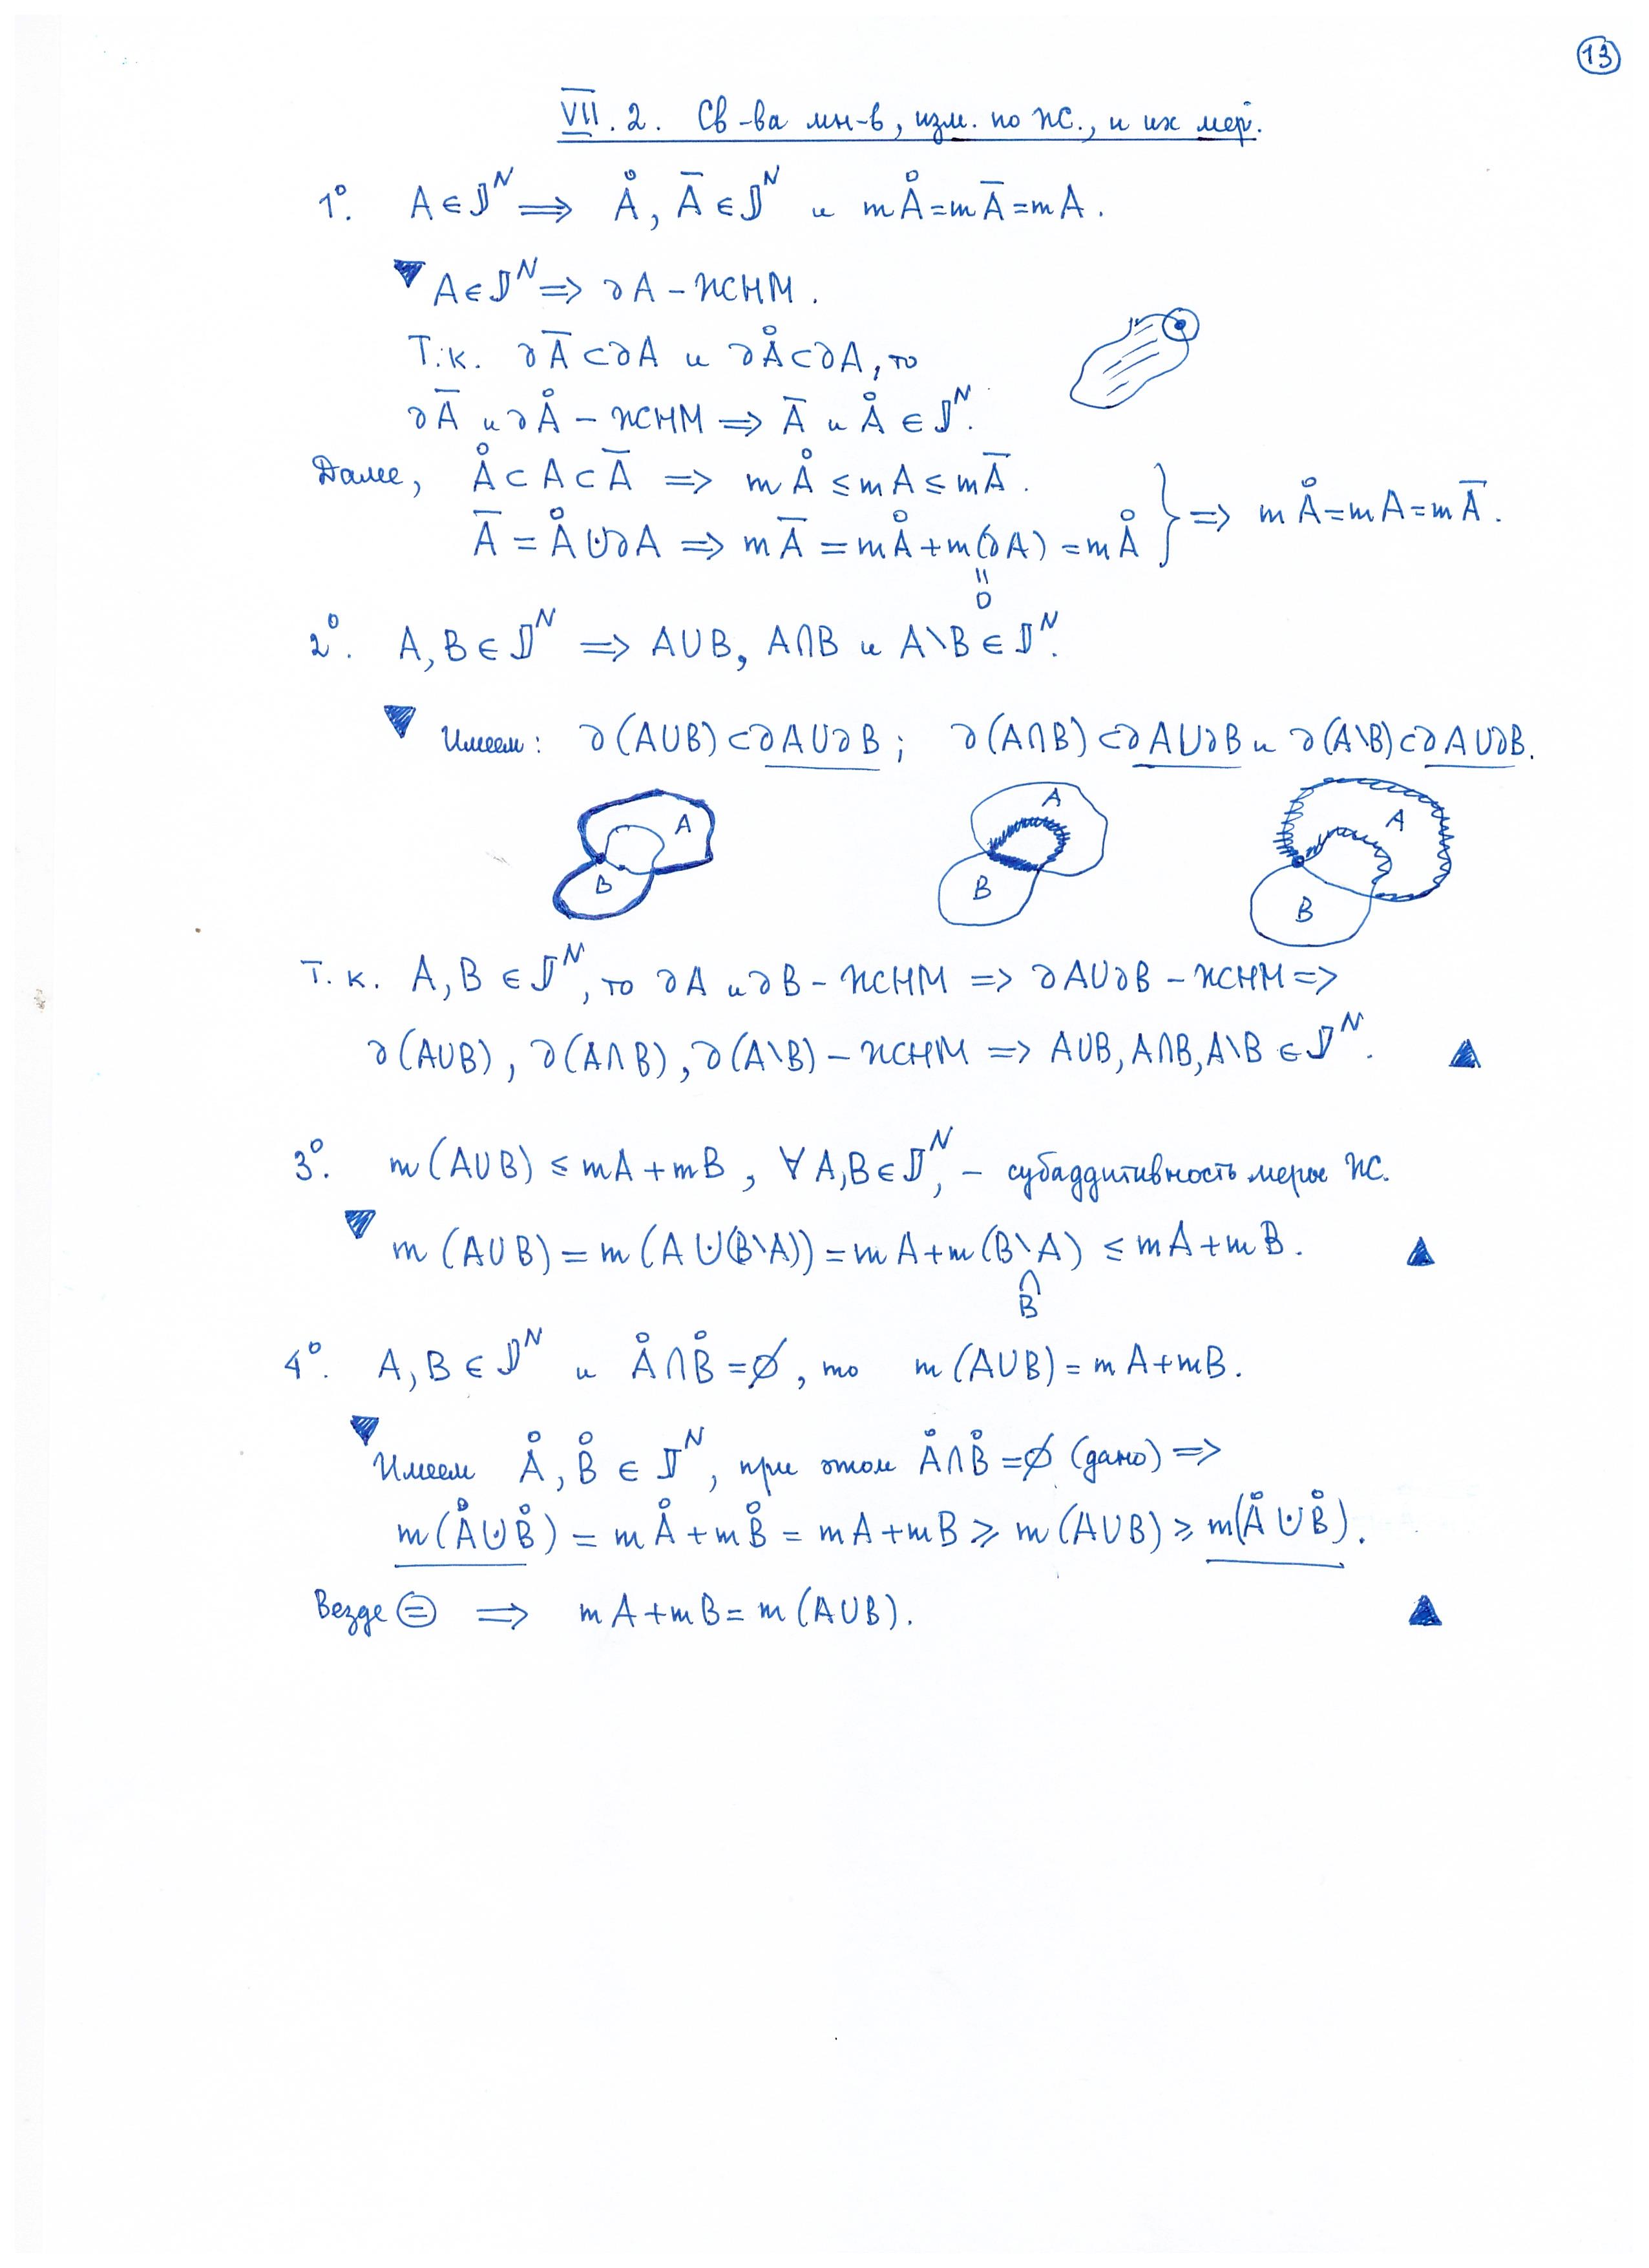 13
VII.2. Св-ва мн-в, изм. по Ж., и их мер.
1°. A ∈ 𝕁ᴺ ⟹ Å, A̅ ∈ 𝕁ᴺ и mÅ = mA̅ = mA.
▼ A ∈ 𝕁ᴺ ⟹ ∂A – ЖНМ.
Т.к. ∂A̅ ⊂ ∂A и ∂Å ⊂ ∂A, то
∂A̅ и ∂Å – ЖНМ ⟹ A̅ и Å ∈ 𝕁ᴺ.
Далее, Å ⊂ A ⊂ A̅ ⟹ mÅ ≤ mA ≤ mA̅.
A̅ = Å ⨃ ∂A ⟹ mA̅ = mÅ + m(∂A) = mÅ } ⟹ mÅ = mA = mA̅.
"
0
2°. A, B ∈ 𝕁ᴺ ⟹ A∪B, A∩B и A\B ∈ 𝕁ᴺ.
▼ Имеем: ∂(A∪B) ⊂ ∂A∪∂B; ∂(A∩B) ⊂ ∂A∪∂B и ∂(A\B) ⊂ ∂A∪∂B.
A A A
B B B
Т.к. A, B ∈ 𝕁ᴺ, то ∂A и ∂B – ЖНМ ⟹ ∂A∪∂B – ЖНМ ⟹
∂(A∪B), ∂(A∩B), ∂(A\B) – ЖНМ ⟹ A∪B, A∩B, A\B ∈ 𝕁ᴺ. ▲
3°. m(A∪B) ≤ mA + mB, ∀ A,B ∈ 𝕁ᴺ, – субаддитивность меры Ж.
▼ m(A∪B) = m(A ⨃ (B\A)) = mA + m(B\A) ≤ mA + mB. ▲
∩
B
4°. A, B ∈ 𝕁ᴺ и Å∩B̊ = ∅, то m(A∪B) = mA + mB.
▼ Имеем Å, B̊ ∈ 𝕁ᴺ, при этом Å∩B̊ = ∅ (дано) ⟹
m(Å⨃B̊) = mÅ + mB̊ = mA + mB ≥ m(A∪B) ≥ m(Å⨃B̊).
Везде = ⟹ mA + mB = m(A∪B). ▲